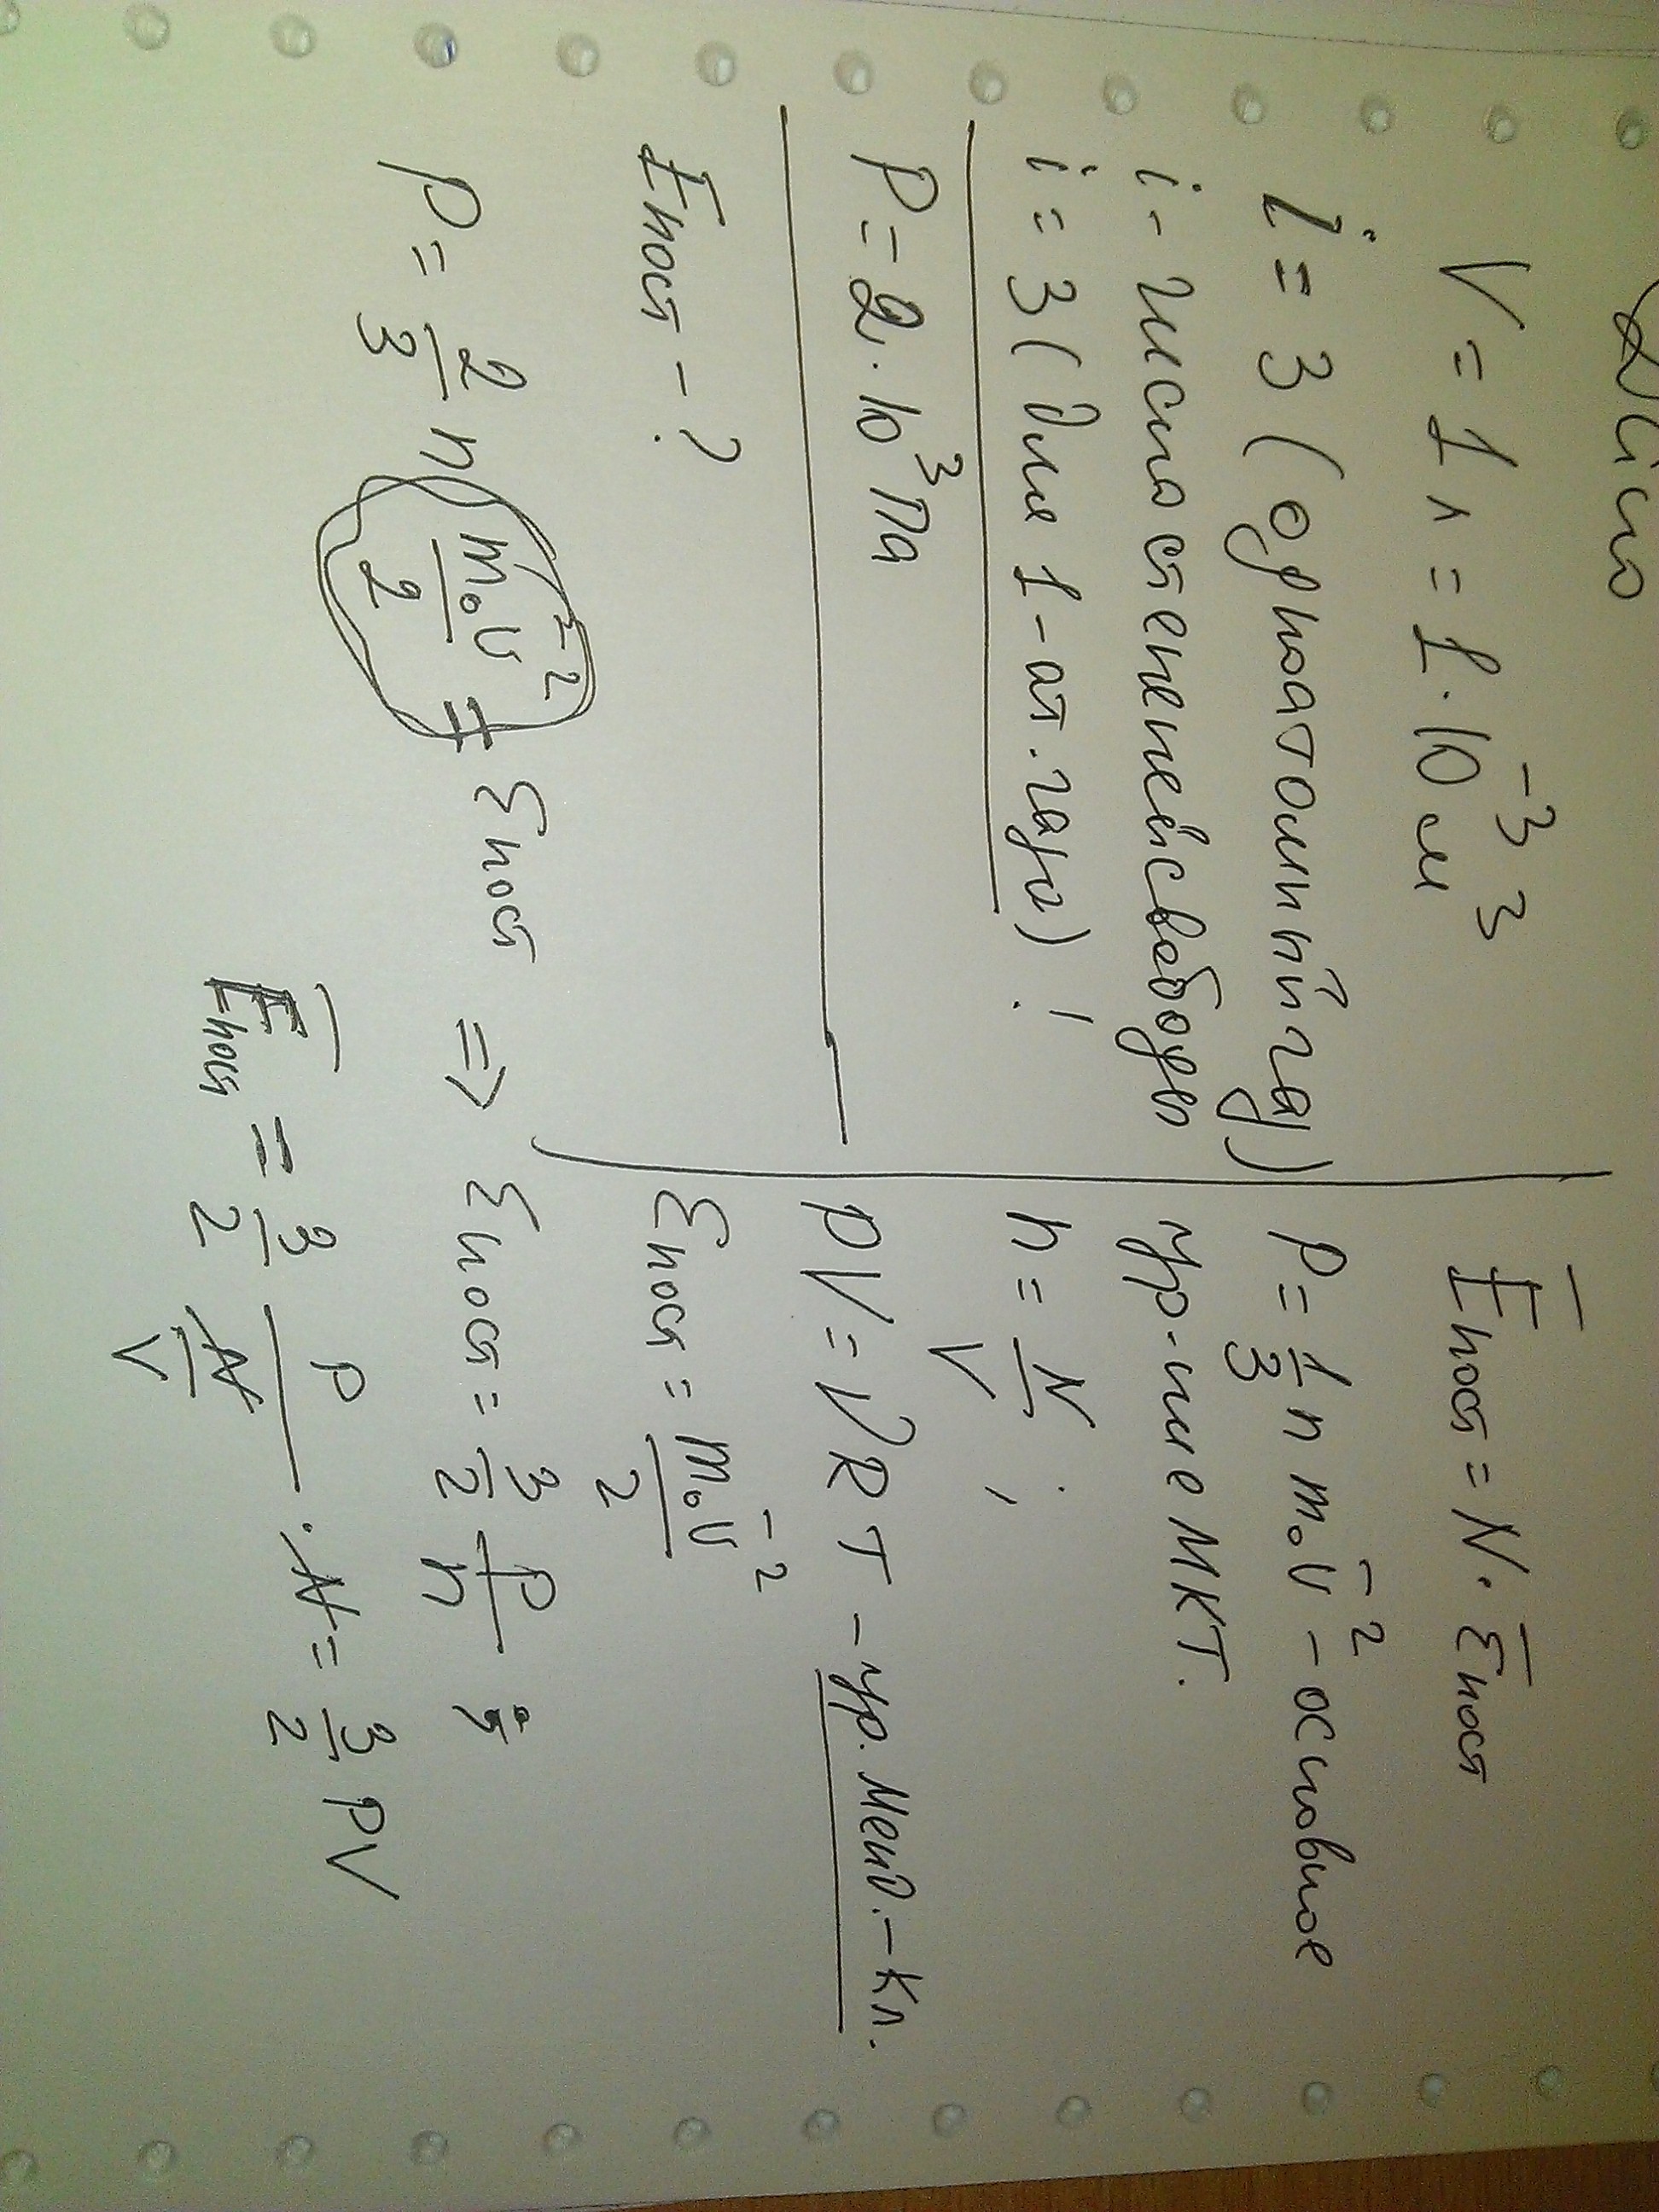 Дано
V = 1 л = 1·10⁻³ м³
i = 3 (одноатомный газ)
i - число степеней свободы
i = 3 (для 1-ат. газа)!
P = 2·10³ Па
Eпост - ?
Ēпост = N · ε̄пост
P = 1/3 n m₀ v̄² - основное
ур-ние МКТ.
n = N/V ;
PV = νRT - ур. Менд. - Кл.
εпост = m₀v̄²/2
P = 2/3 n m₀v̄²/2 = εпост => εпост = 3/2 P/n ;
Ēпост = 3/2 P/(N/V) · N = 3/2 PV